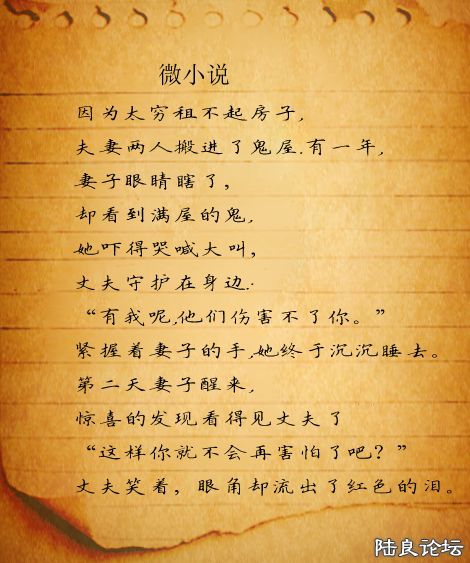 微小说
因为太穷租不起房子,
夫妻两人搬进了鬼屋.有一年,
妻子眼睛瞎了，
却看到满屋的鬼,
她吓得哭喊大叫，
丈夫守护在身边.
“有我呢,他们伤害不了你。”
紧握着妻子的手,她终于沉沉睡去。
第二天妻子醒来,
惊喜的发现看得见丈夫了
“这样你就不会再害怕了吧？”
丈夫笑着，眼角却流出了红色的泪。
陆良论坛